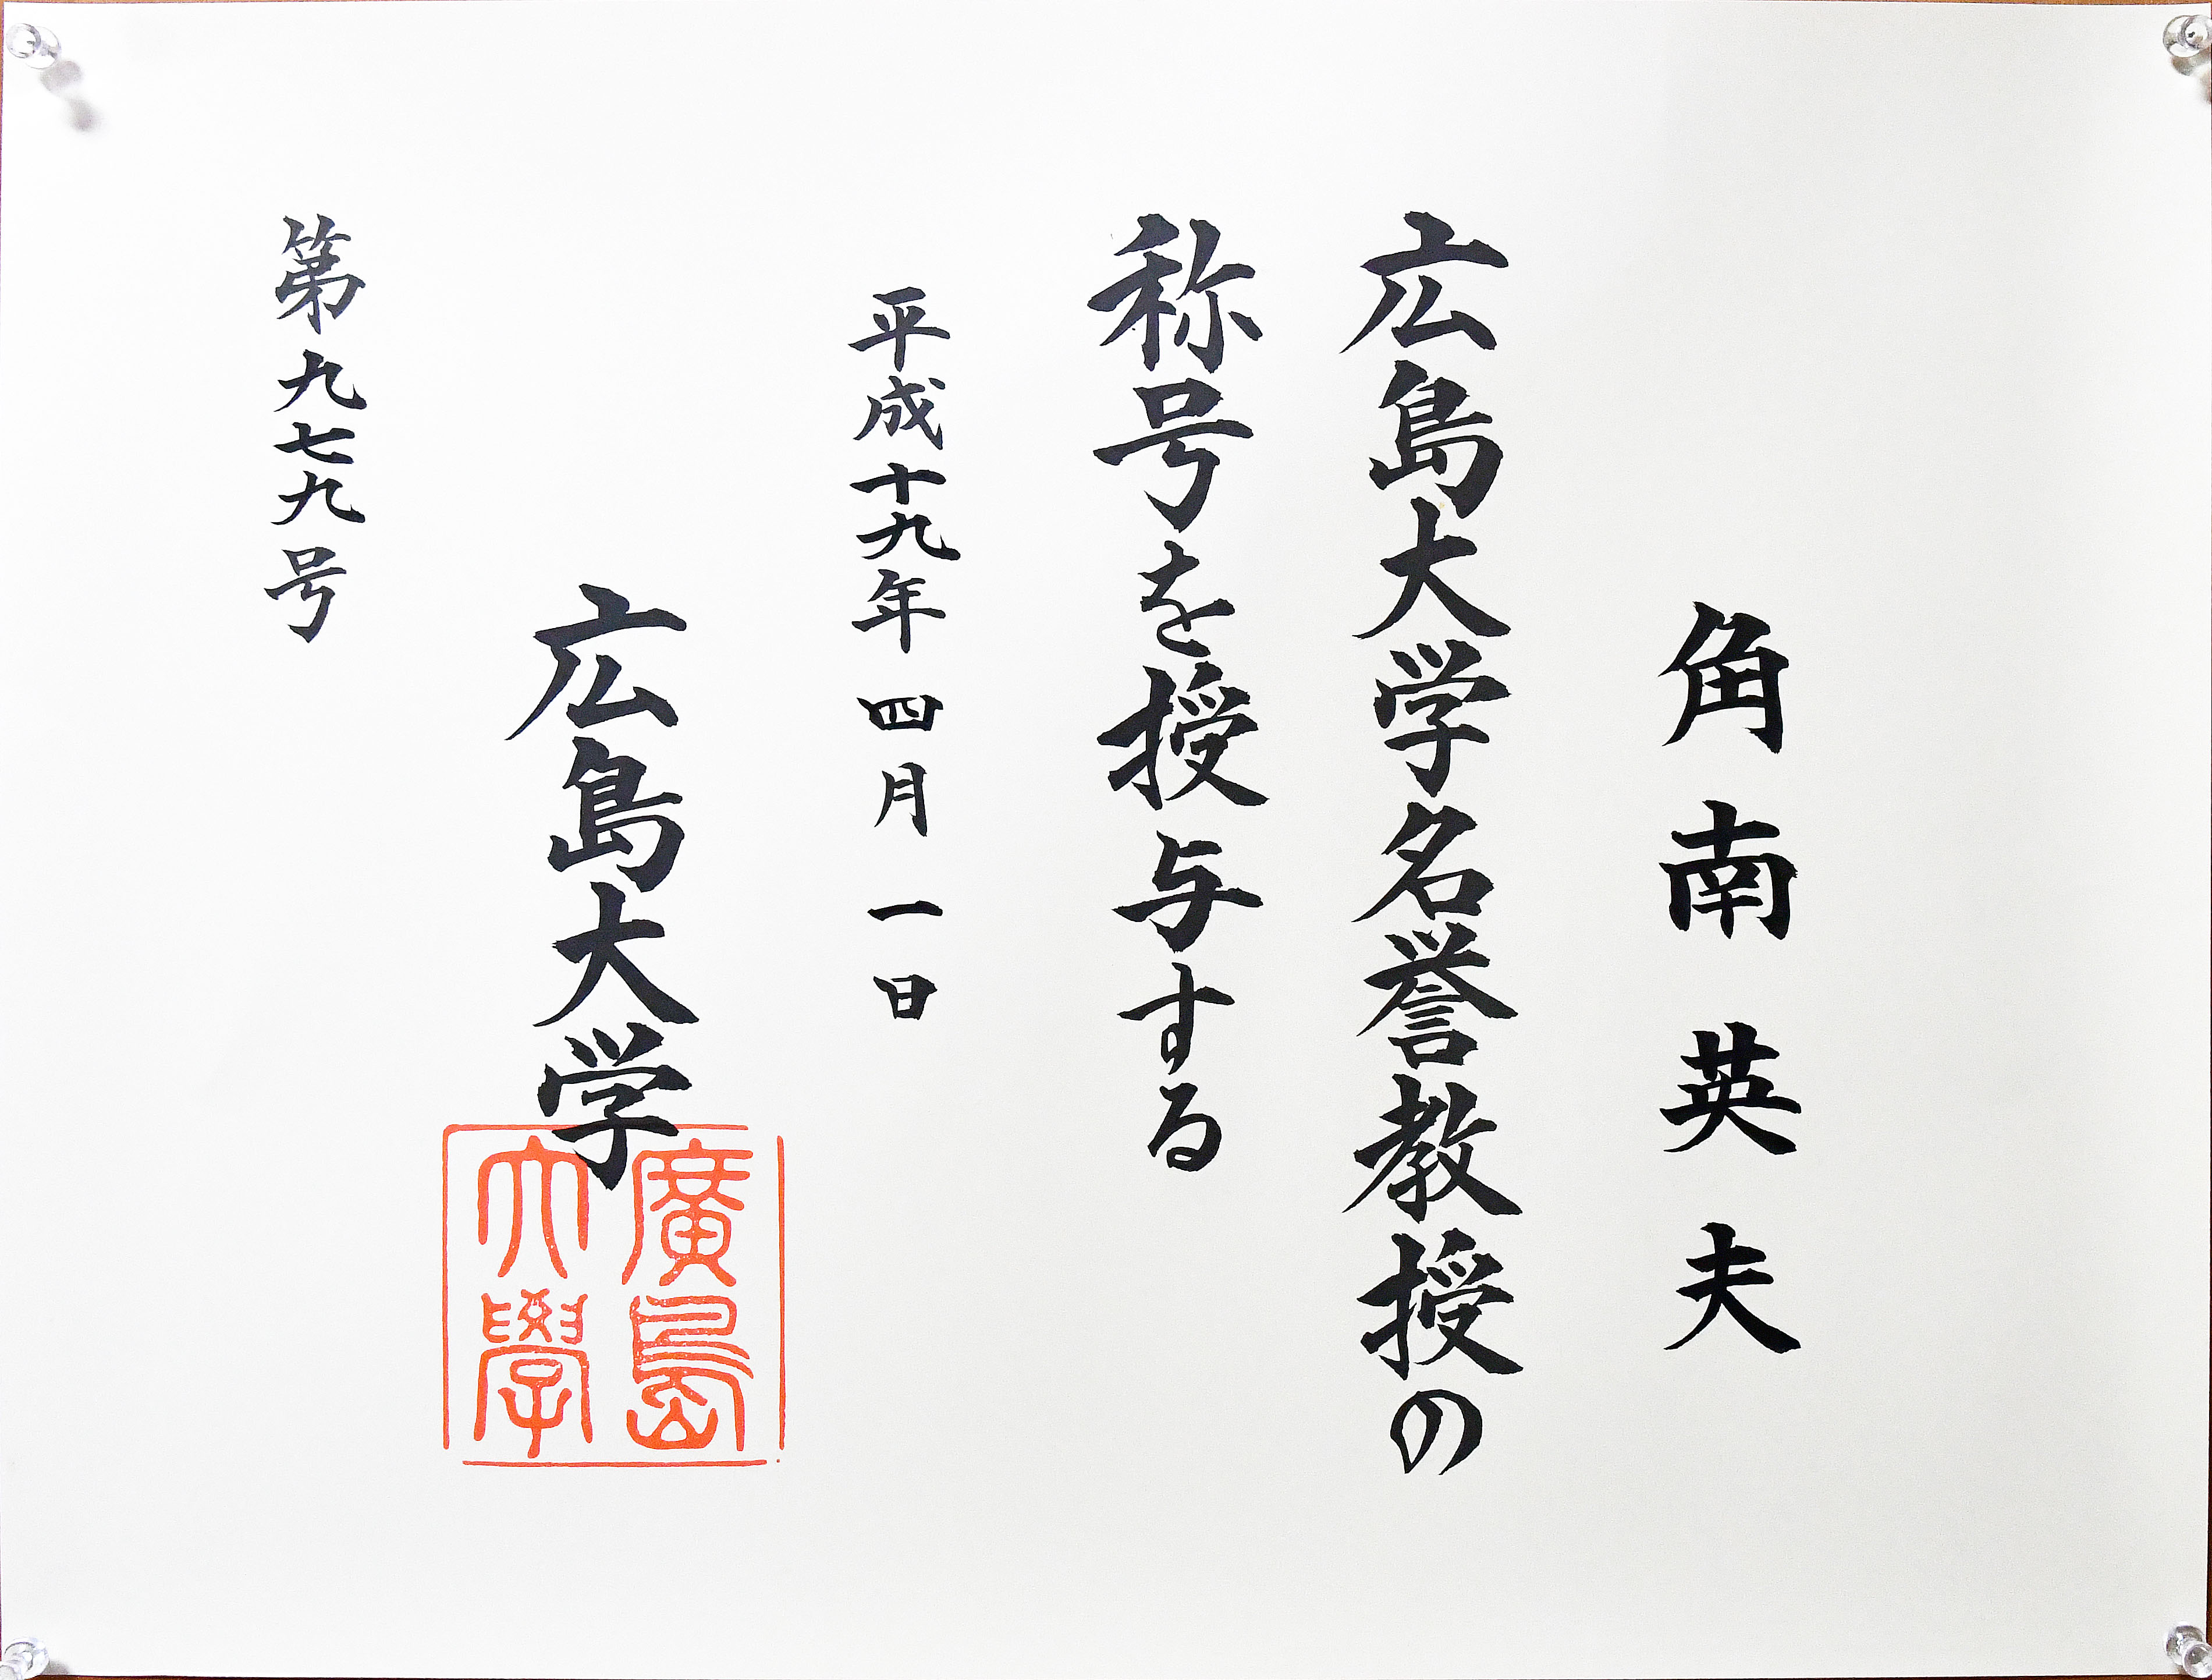 角南英夫
広島大学名誉教授の
称号を授与する
平成十九年四月一日
広島大学
廣島
大學
第九七九号